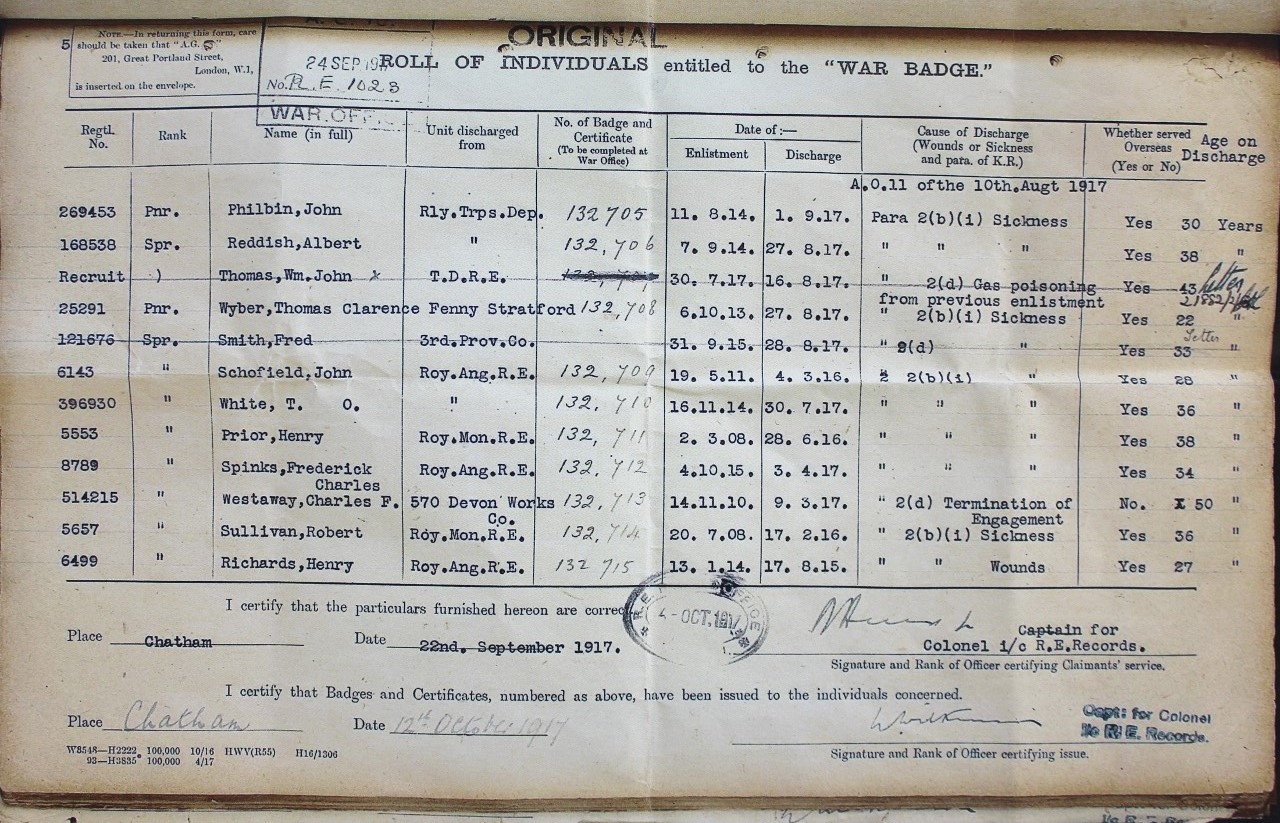 ORIGINAL
5
NOTE.—In returning this form, care
should be taken that "A.G.
201, Great Portland Street,
London, W.1,
is inserted on the envelope.
24 SEP 191
No. R.E. 1023
WAR OFFI
ROLL OF INDIVIDUALS entitled to the "WAR BADGE."
Regtl. No. Rank Name (in full) Unit discharged from No. of Badge and Certificate (To be completed at War Office) Date of :— Enlistment Discharge Cause of Discharge (Wounds or Sickness and para. of K.R.) Whether served Overseas (Yes or No) Age on Discharge
A.O.11 of the 10th.Augt 1917
269453 Pnr. Philbin,John Rly.Trps.Dep. 132705 11. 8.14. 1. 9.17. Para 2(b)(i) Sickness Yes 30 Years
168538 Spr. Reddish,Albert " 132,706 7. 9.14. 27. 8.17. " " " Yes 38 "
Recruit ) Thomas,Wm.John x T.D.R.E. 30. 7.17. 16. 8.17. " 2(d) Gas poisoning Yes 43 Letter
from previous enlistment
25291 Pnr. Wyber,Thomas Clarence Fenny Stratford 132,708 6.10.13. 27. 8.17. " 2(b)(i) Sickness Yes 22 "
121676 Spr. Smith,Fred 3rd.Prov.Co. 31. 9.15. 28. 8.17. " 2(d) " Yes 33 " Letter
6143 " Schofield,John Roy.Ang.R.E. 132,709 19. 5.11. 4. 3.16. 2 2(b)(i) " Yes 28 "
396930 " White, T. O. " 132,710 16.11.14. 30. 7.17. " " " Yes 36 "
5553 " Prior,Henry Roy.Mon.R.E. 132,711 2. 3.08. 28. 6.16. " " " Yes 38 "
8789 " Spinks,Frederick Roy.Ang.R.E. 132,712 4.10.15. 3. 4.17. " " " Yes 34 "
Charles
514215 " Westaway,Charles F. 570 Devon Works 132,713 14.11.10. 9. 3.17. " 2(d) Termination of No. 50 "
Co. Engagement
5657 " Sullivan,Robert Roy.Mon.R.E. 132,714 20. 7.08. 17. 2.16. " 2(b)(i) Sickness Yes 36 "
6499 " Richards,Henry Roy.Ang.R.E. 132 715 13. 1.14. 17. 8.15. " " Wounds Yes 27 "
I certify that the particulars furnished hereon are correc
R.E. OFFICE
4-OCT.1917
Place Chatham Date 22nd. September 1917.
Captain for
Colonel i/c R.E.Records.
Signature and Rank of Officer certifying Claimants' service.
I certify that Badges and Certificates, numbered as above, have been issued to the individuals concerned.
Place Chatham Date 12th October 1917
Capt: for Colonel
i/c R.E. Records.
Signature and Rank of Officer certifying issue.
W8548—H2222 100,000 10/16 HWV(R55) H16/1306
93—H3835 100,000 4/17